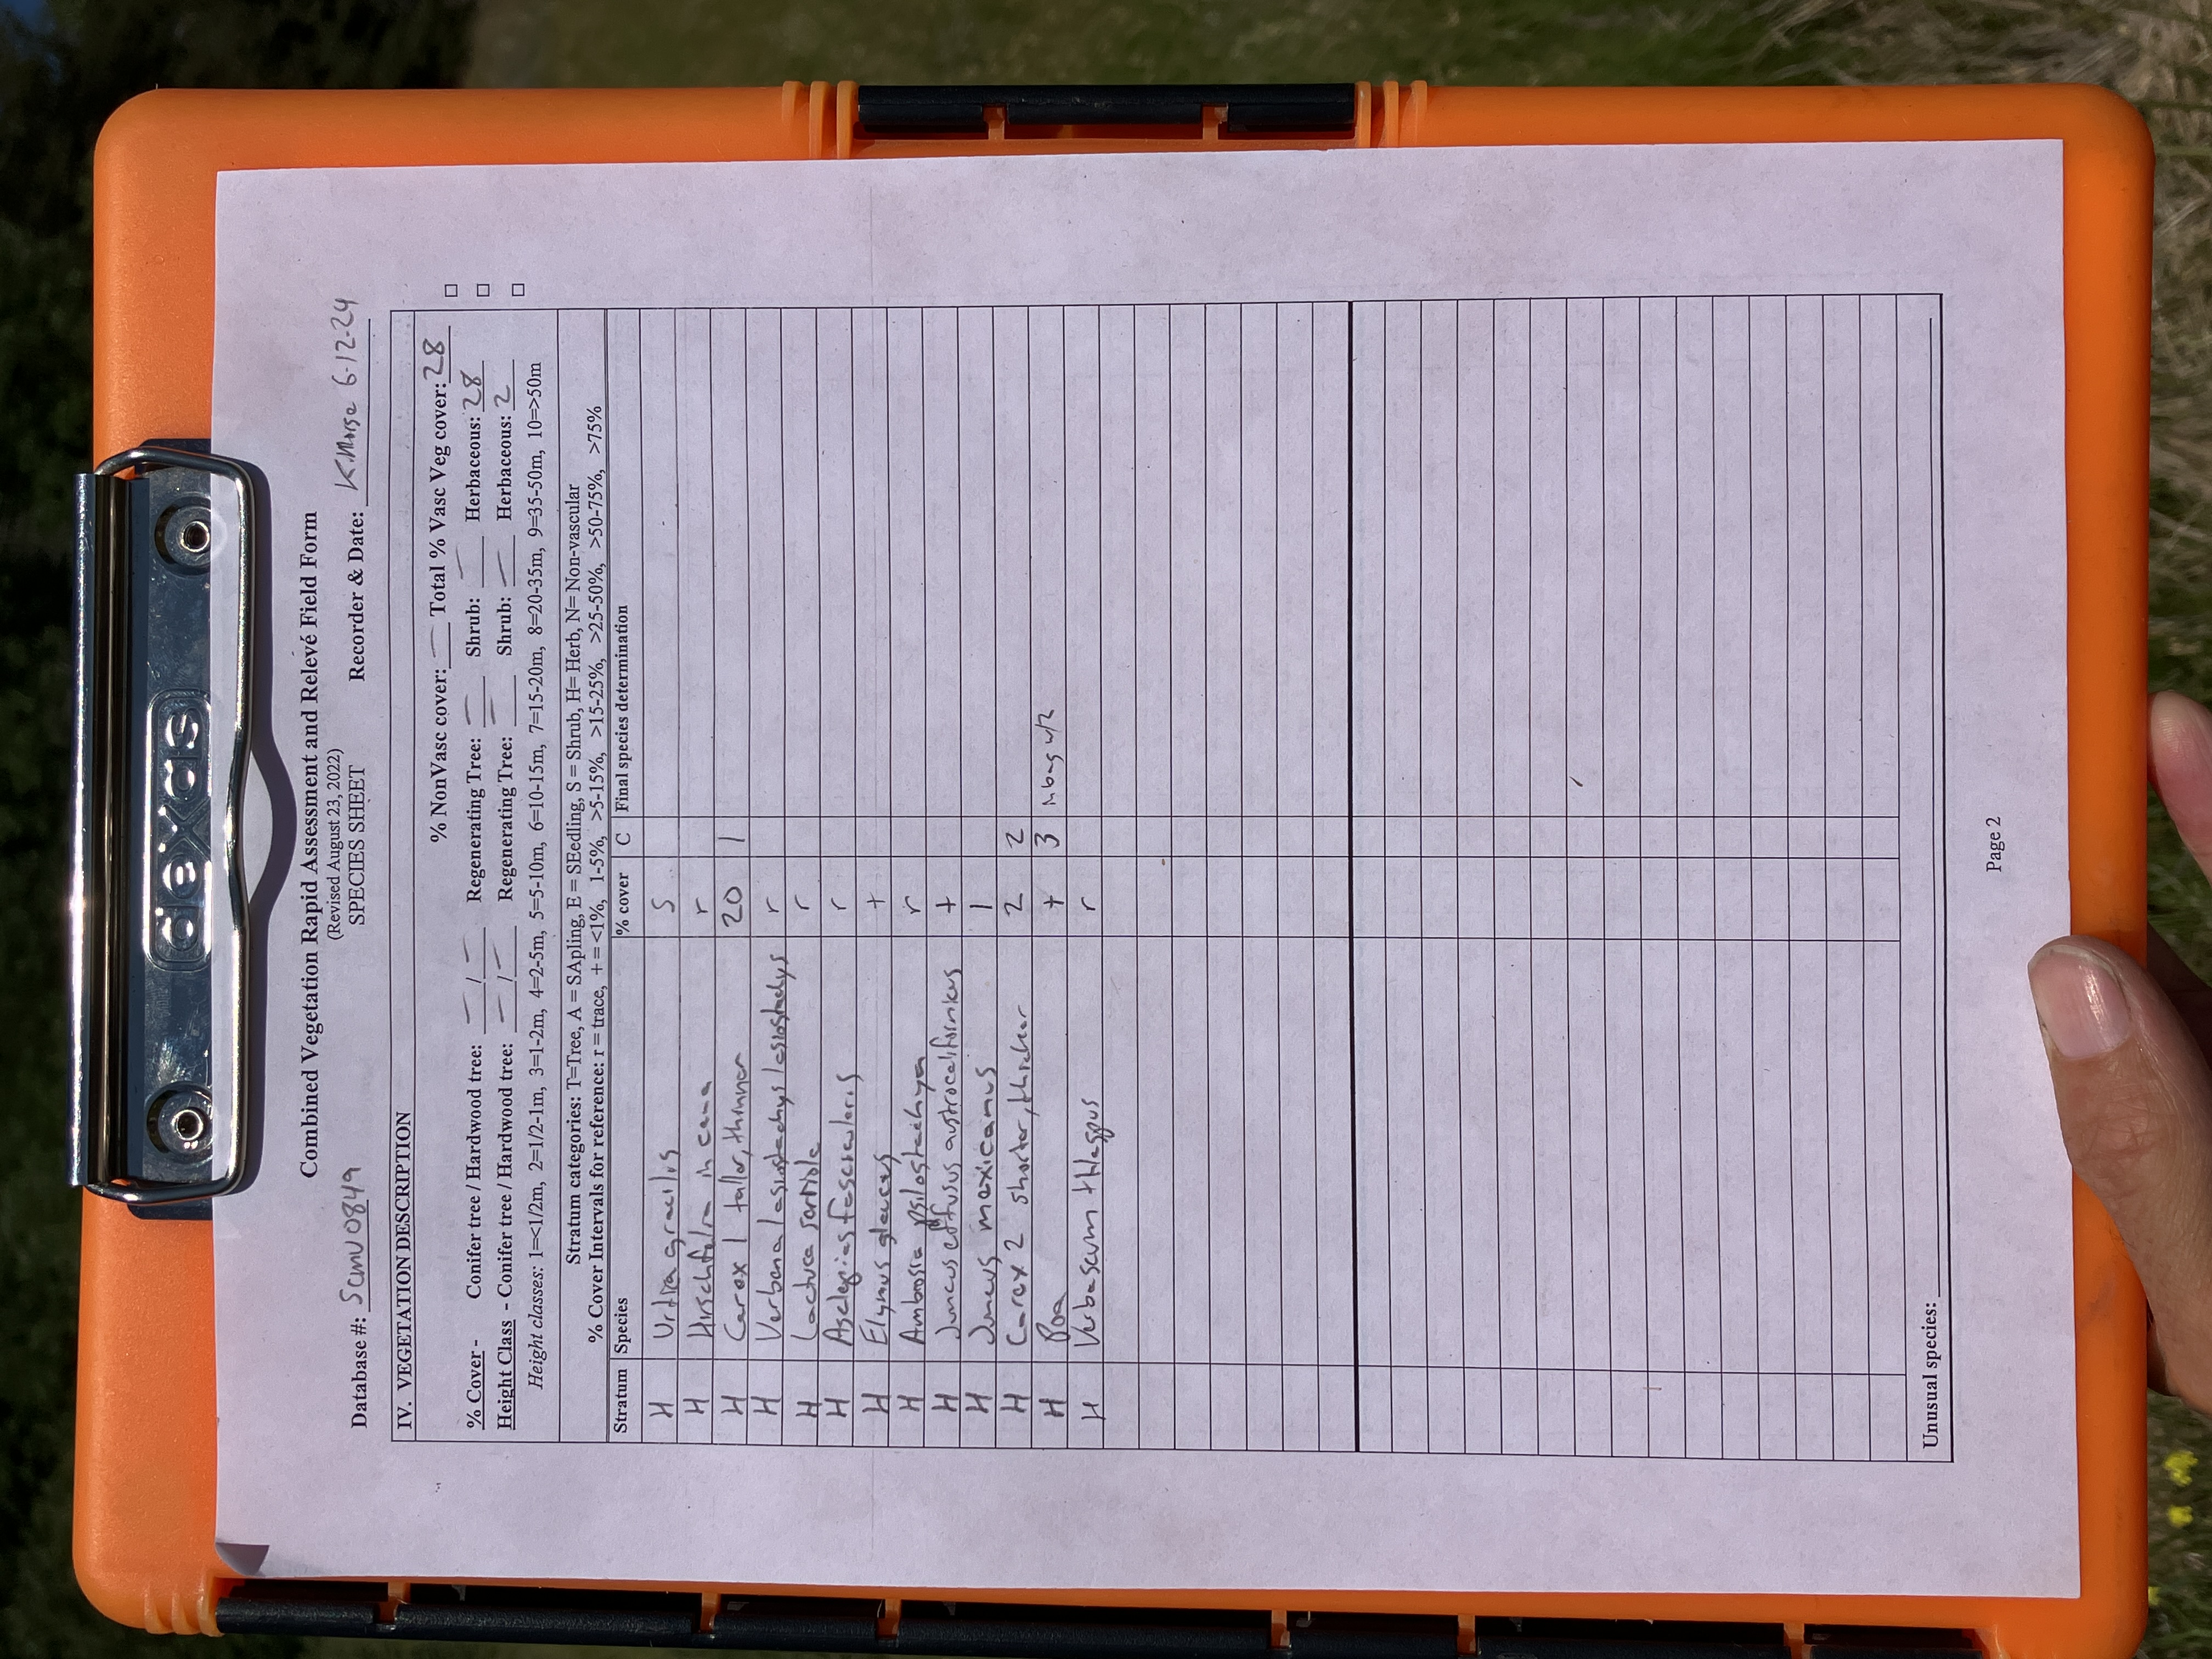 dexas
Combined Vegetation Rapid Assessment and Relevé Field Form
(Revised August 23, 2022)
SPECIES SHEET
Database #: SCMU0849 Recorder & Date: K.Morse 6-12-24
IV. VEGETATION DESCRIPTION
% NonVasc cover: — Total % Vasc Veg cover: 28
% Cover - Conifer tree / Hardwood tree: — / — Regenerating Tree: — Shrub: — Herbaceous: 28
Height Class - Conifer tree / Hardwood tree: — / — Regenerating Tree: — Shrub: — Herbaceous: 2
Height classes: 1=<1/2m, 2=1/2-1m, 3=1-2m, 4=2-5m, 5=5-10m, 6=10-15m, 7=15-20m, 8=20-35m, 9=35-50m, 10=>50m
Stratum categories: T=Tree, A = SApling, E = SEedling, S = Shrub, H= Herb, N= Non-vascular
% Cover Intervals for reference: r = trace, + = <1%, 1-5%, >5-15%, >15-25%, >25-50%, >50-75%, >75%
Stratum Species % cover C Final species determination
H Urtica gracilis 5
H Hirschfeldia incana r
H Carex 1 taller, thinner 20 1
H Verbena lasiostachys lasiostachys r
H Lactuca serriola r
H Asclepias fascicularis r
H Elymus glaucus +
H Ambrosia psilostachya r
H Juncus effusus austrocalifornicus +
H Juncus mexicanus 1
H Carex 2 shorter, thicker 2 2
H Poa + 3 in bag w/2
H Verbascum thapsus r
Unusual species:
Page 2